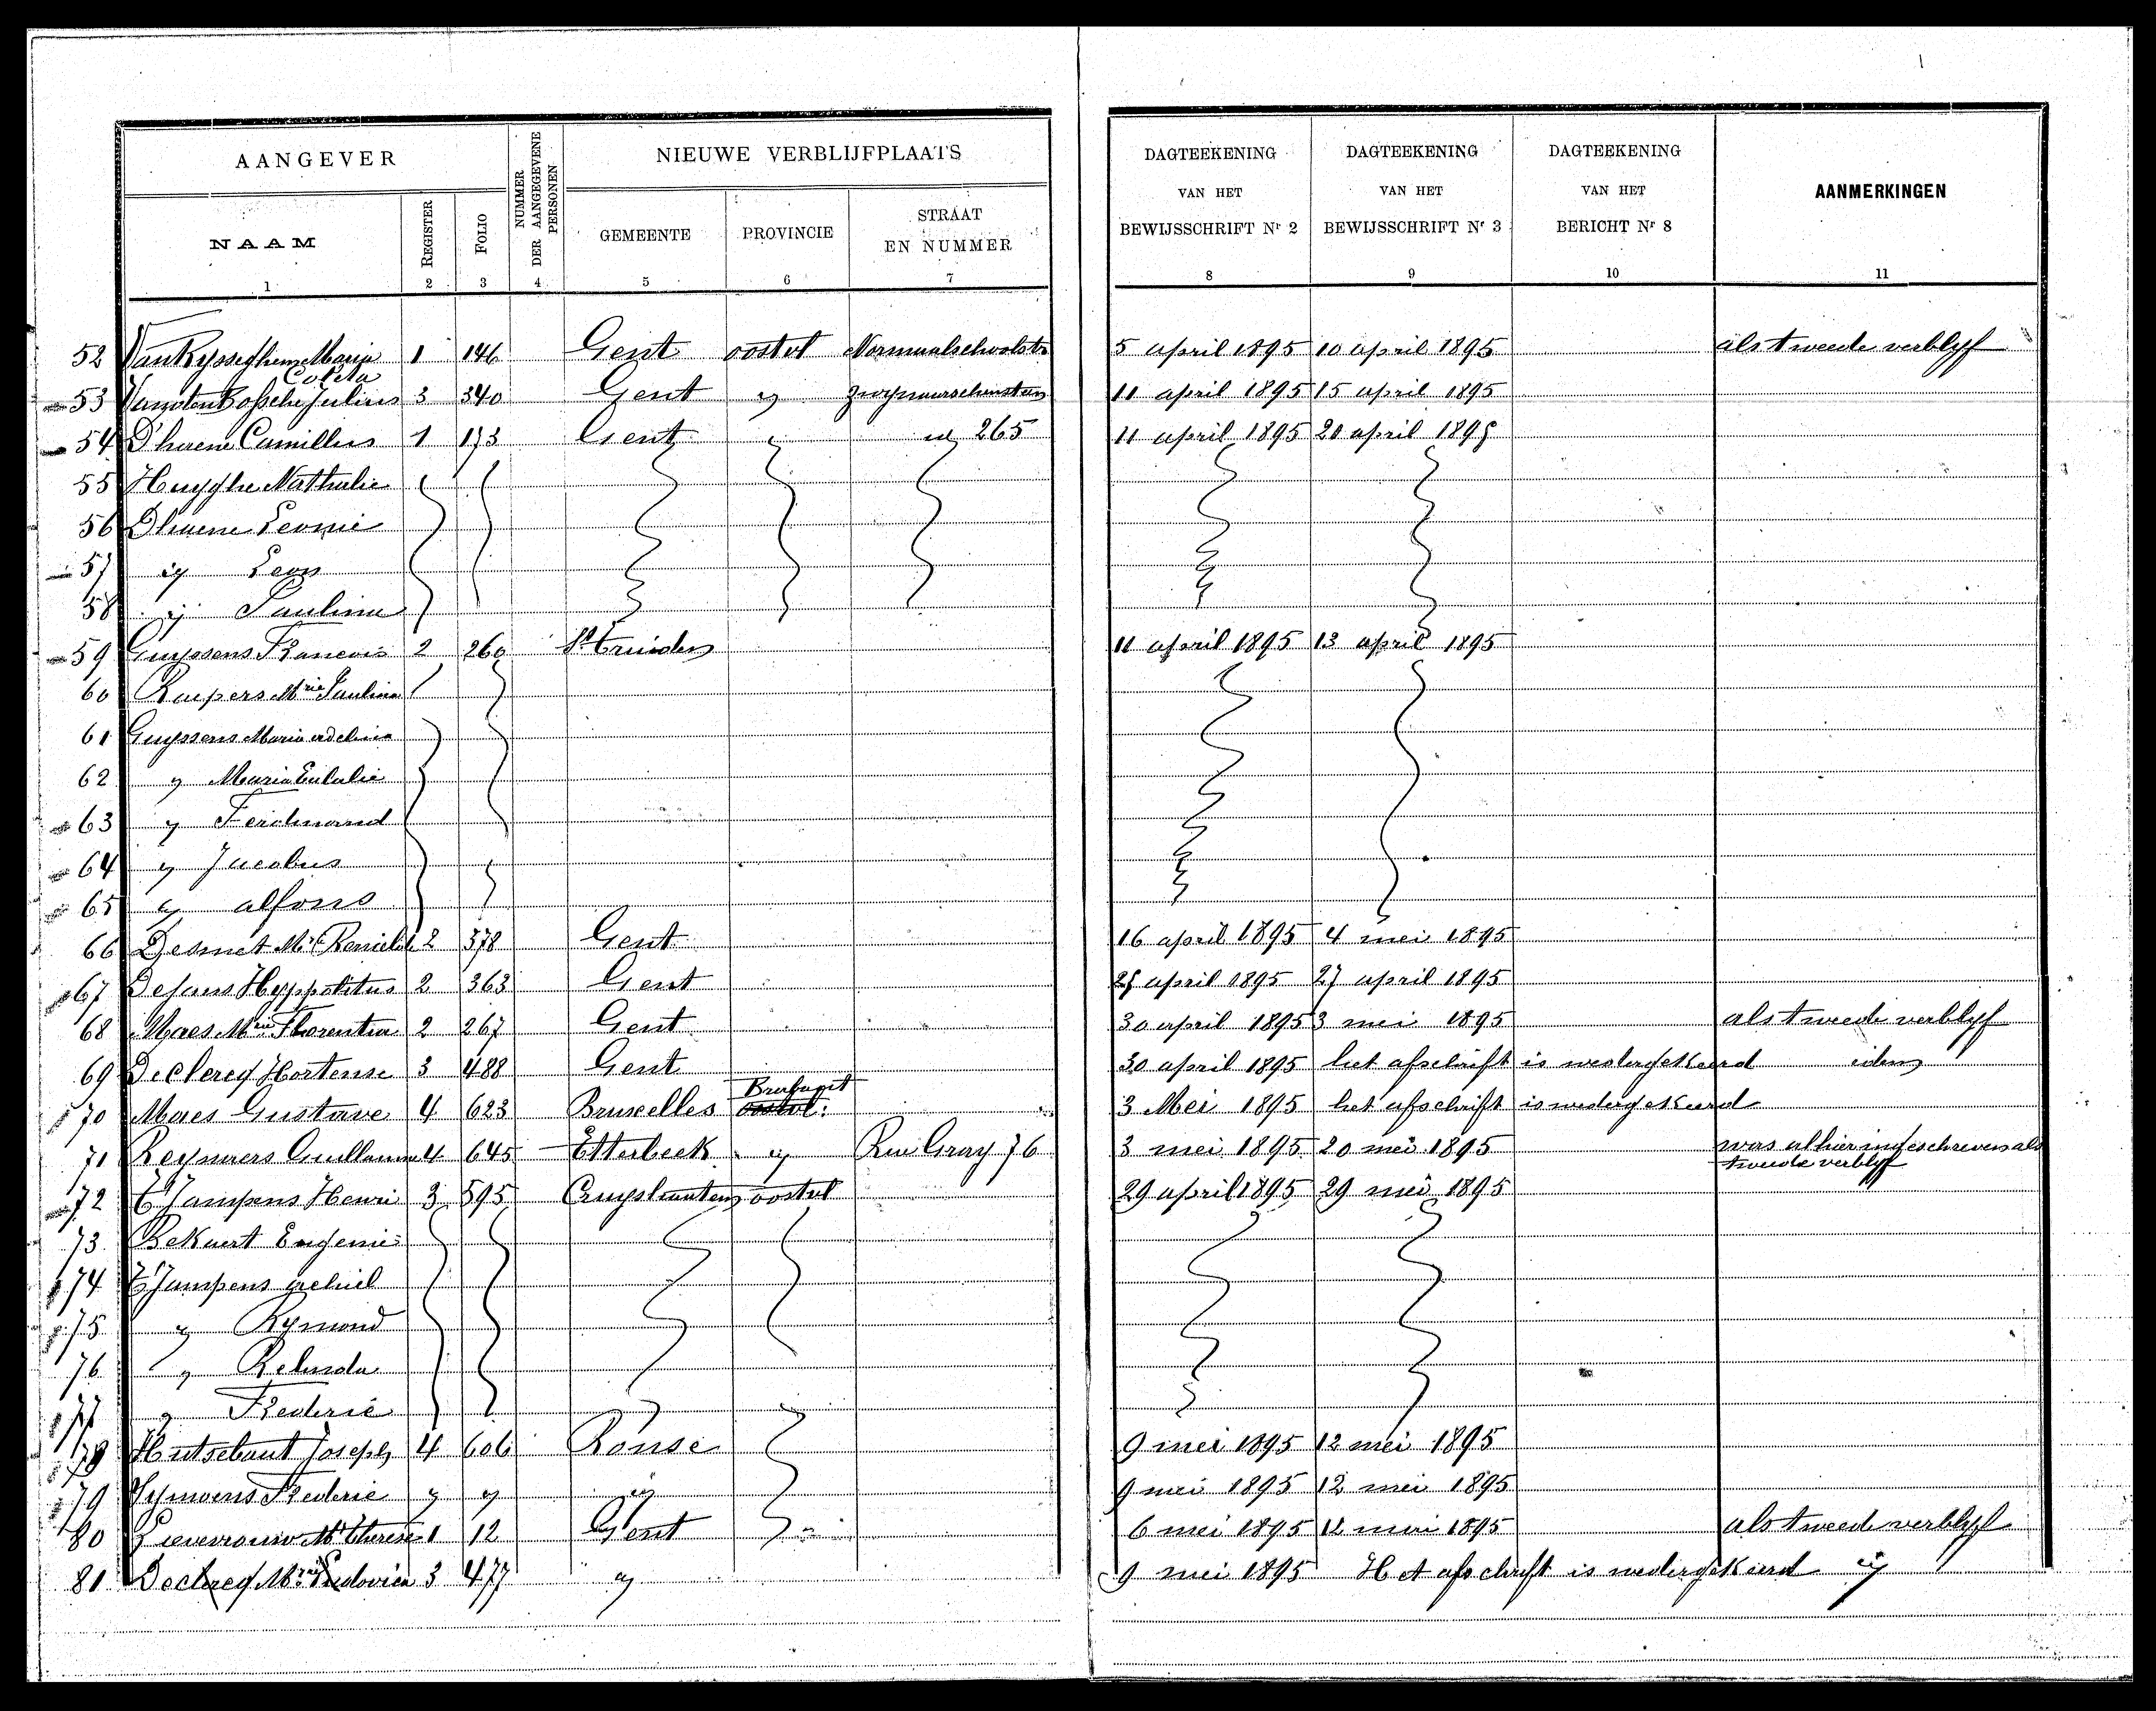 AANGEVER NUMMER DER AANGEGEVENE PERSONEN NIEUWE VERBLIJFPLAATS DAGTEEKENING VAN HET BEWIJSSCHRIFT Nr 2 DAGTEEKENING VAN HET BEWIJSSCHRIFT Nr 3 DAGTEEKENING VAN HET BERICHT Nr 8 AANMERKINGEN
NAAM REGISTER FOLIO GEMEENTE PROVINCIE STRAAT EN NUMMER
1 2 3 4 5 6 7 8 9 10 11
52 Van Rysseghem Maria Coleta 1 146 Gent oostvl Normaalschoolstr 5 april 1895 10 april 1895 als tweede verblyf
53 Vandenbossche Julius 3 340 Gent id 11 april 1895 15 april 1895
54 D'haene Camillus 1 173 Gent id id 265 11 april 1895 20 april 1895
55 Huyghe Nathalie
56 Dhaene Leonie
57 id Leon
58 id Paulina
59 Guyssens Francois 2 260 St Truiden 11 april 1895 13 april 1895
60 Raepers Mrie Paulina
61 Guyssens Maria adelina
62 id Maria Eulalie
63 id Ferdinand
64 id Jacobus
65 id alfons
66 Desmet 2 378 Gent 16 april 1895 4 mei 1895
67 Hyppolitus 2 363 Gent 25 april 1895 27 april 1895
68 Maes Mria Florentia 2 267 Gent 30 april 1895 3 mei 1895 als tweede verblyf
69 Declercq Hortense 3 488 Gent 30 april 1895 het afschrift is wedergekeerd idem
70 Maes Gustave 4 623 Bruxelles Brabant oostvl: 3 Mei 1895 het afschrift is wedergekeerd
71 Reynaers Guillaume 4 645 Etterbeek id Rue Gray 76 3 mei 1895 20 mei 1895 was alhier ingeschreven als
tweede verblyf
72 T'Jampens Henri 3 595 Cruyshautem oostvl 29 april 1895 29 mei 1895
73 Bekaert Eugenie
74 T'Jampens achiel
75 id Rymond
76 id Relinda
77 id Frederic
78 Hutsebaut Joseph 4 606 Ronse 9 mei 1895 12 mei 1895
79 Frederic id id id 9 mei 1895 12 mei 1895
80 Lievrouw Mie Therese 1 12 Gent 6 mei 1895 12 mei 1895 als tweede verblyf
81 Declercq Mria Ludovica 3 477 id 9 mei 1895 Het afschrift is wedergekeerd id